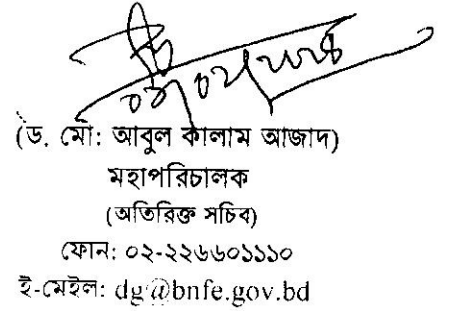 (ড. মো: আবুল কালাম আজাদ)
মহাপরিচালক
(অতিরিক্ত সচিব)
ফোন: ০২-২২৬৬০১১১০
ই-মেইল: dg@bnfe.gov.bd